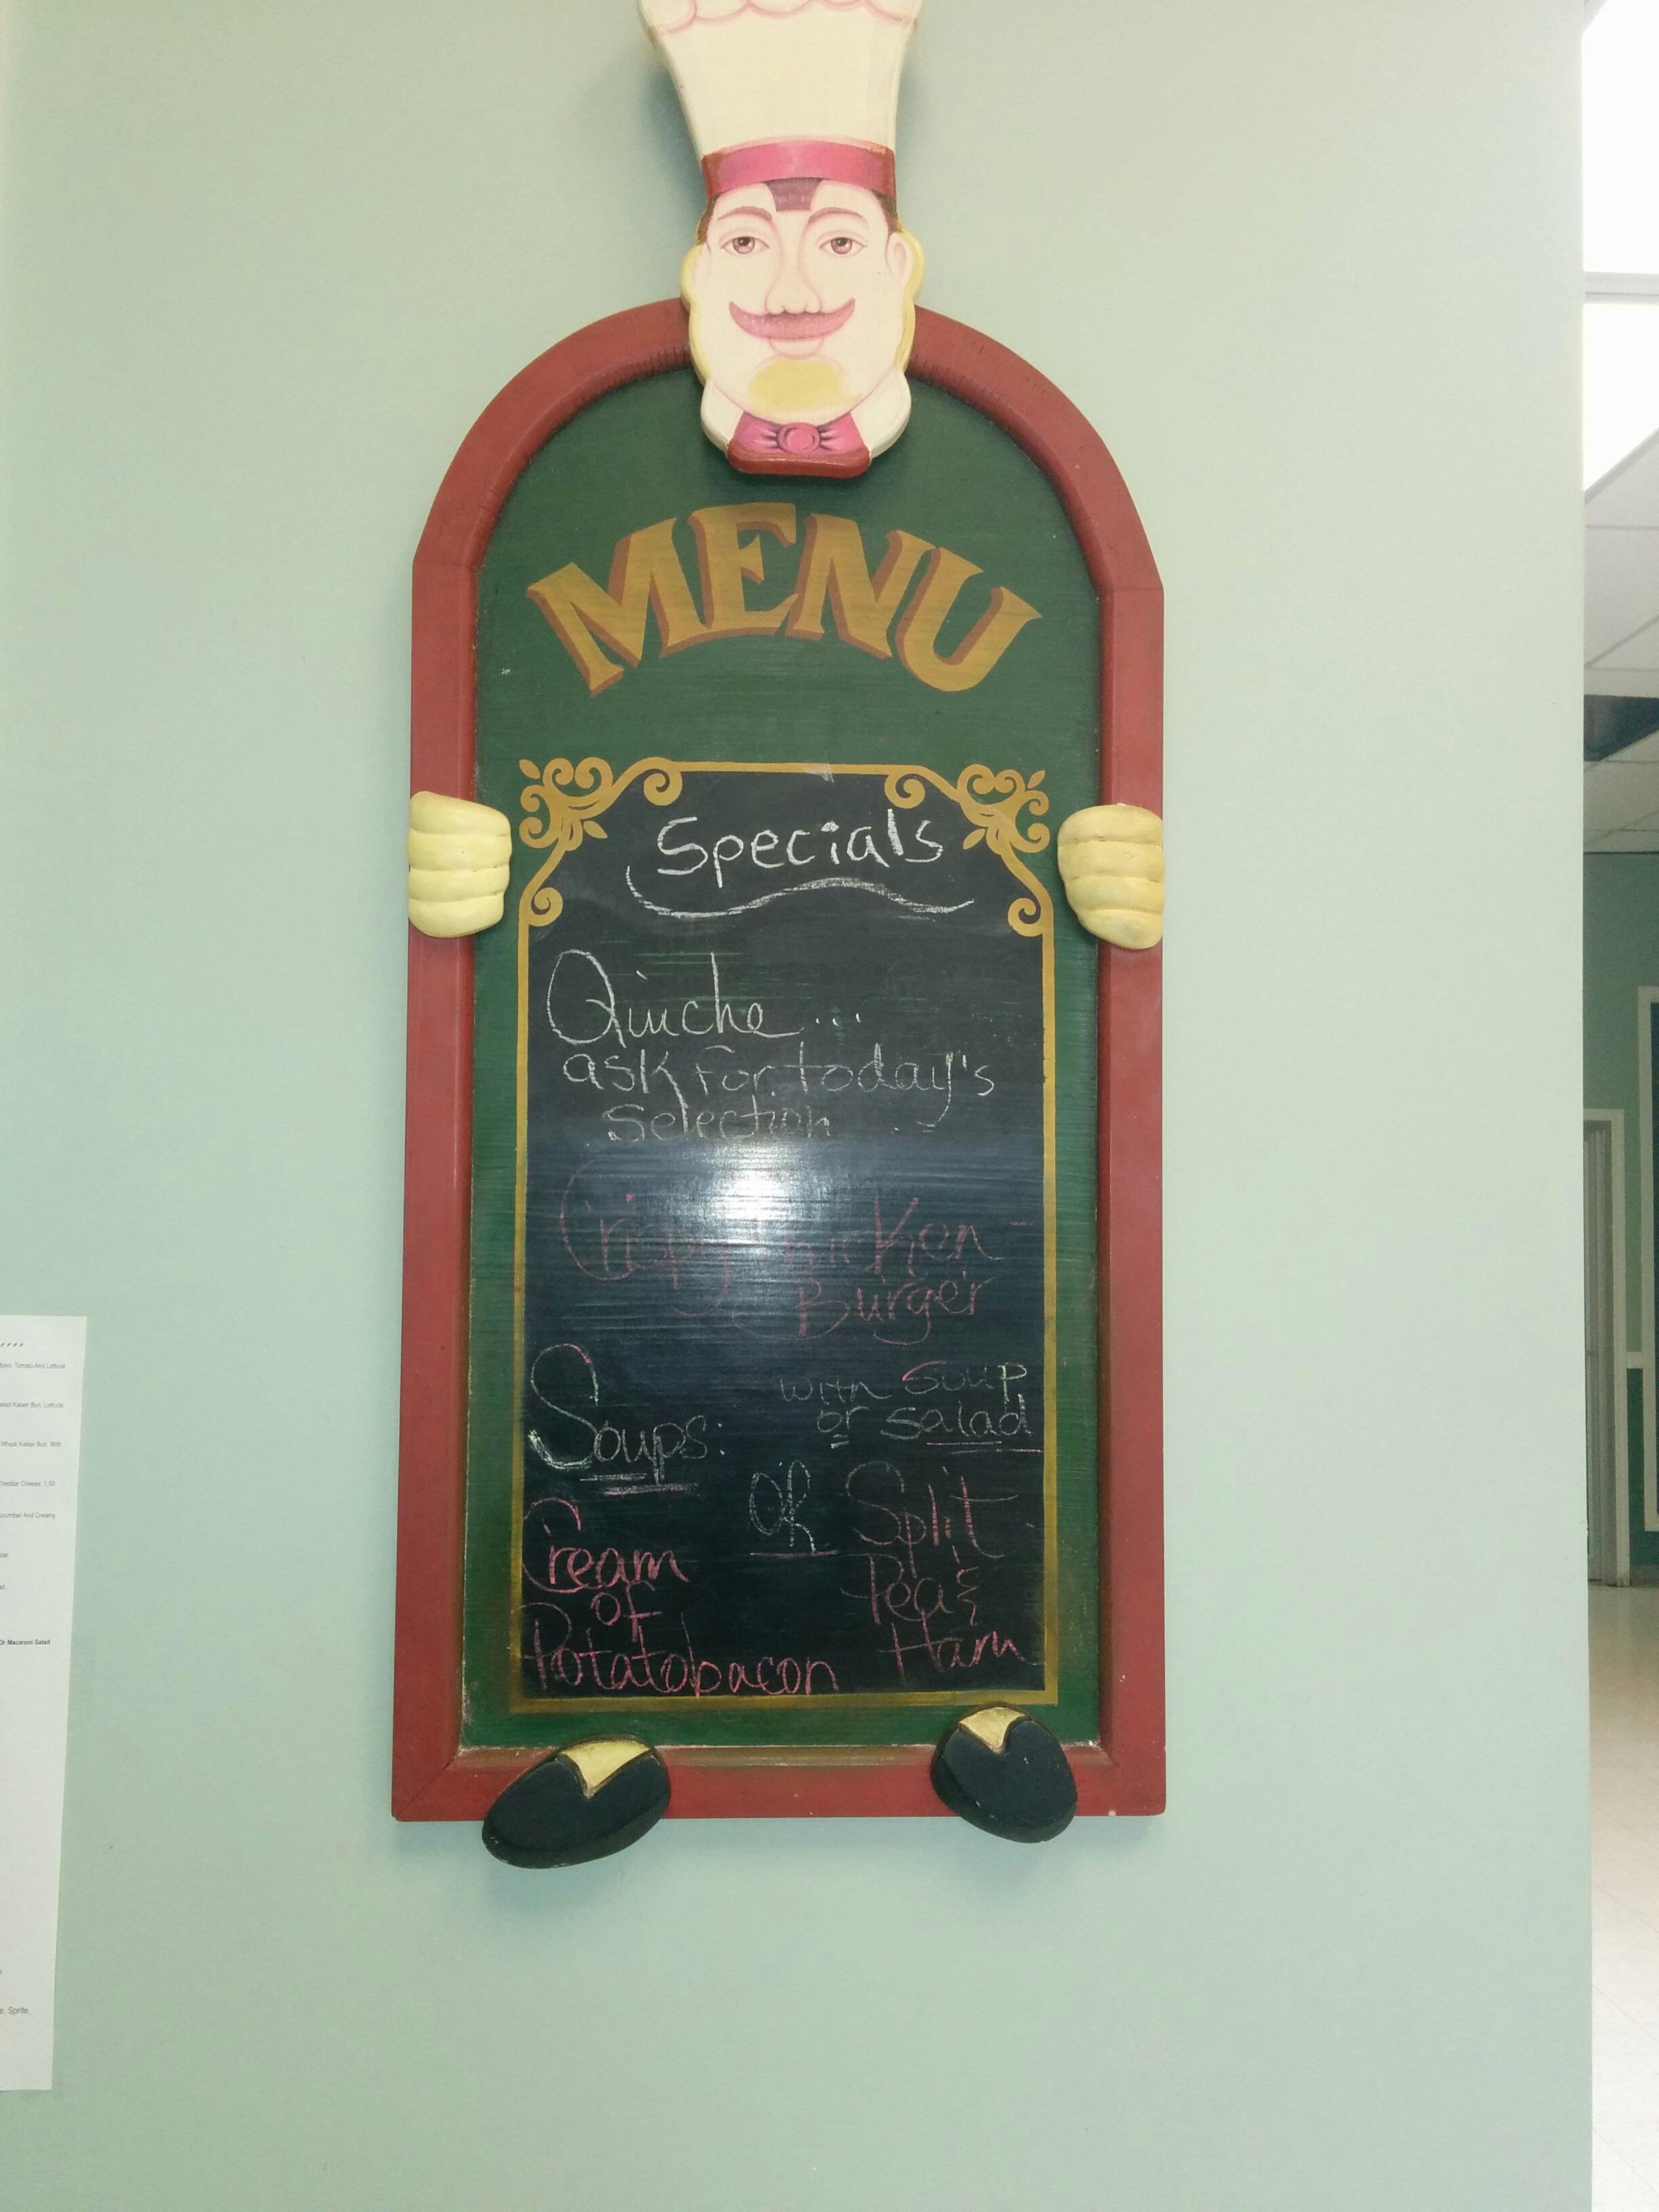 MENU
Specials
Quiche...
ask for today's
selection
Crispy Chicken
Burger
with soup
or salad
Soups:
Cream
of
Potatobacon
OR
Split
Pea &
Ham
Tomato And Lettuce
Kaiser Bun, Lettuce,
Wheat Kaiser Bun, With
Cheddar Cheese 1.50
And Creamy
Or Macaroni Salad
Sprite,